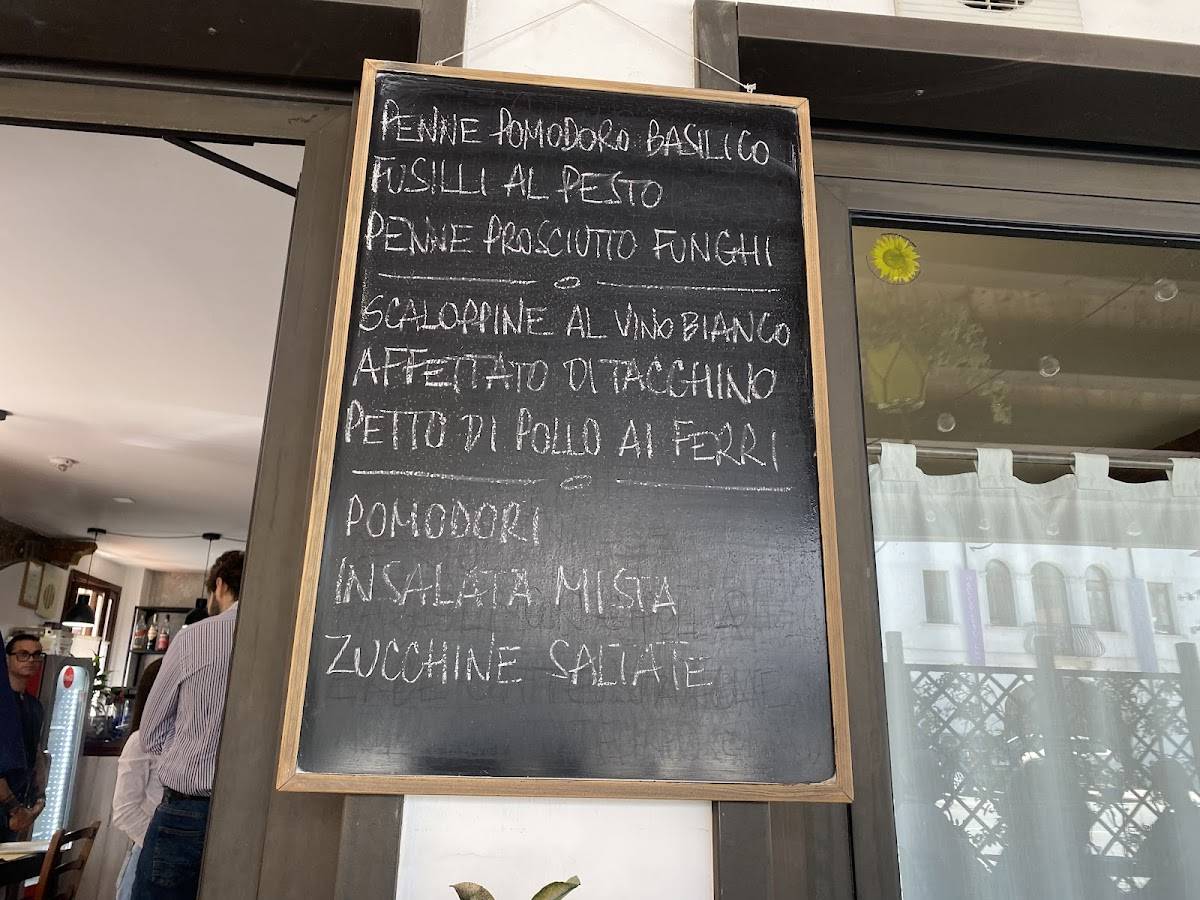 PENNE POMODORO BASILICO
FUSILLI AL PESTO
PENNE PROSCIUTTO FUNGHI
SCALOPPINE AL VINO BIANCO
AFFETTATO DI TACCHINO
PETTO DI POLLO AI FERRI
POMODORI
INSALATA MISTA
ZUCCHINE SALTATE